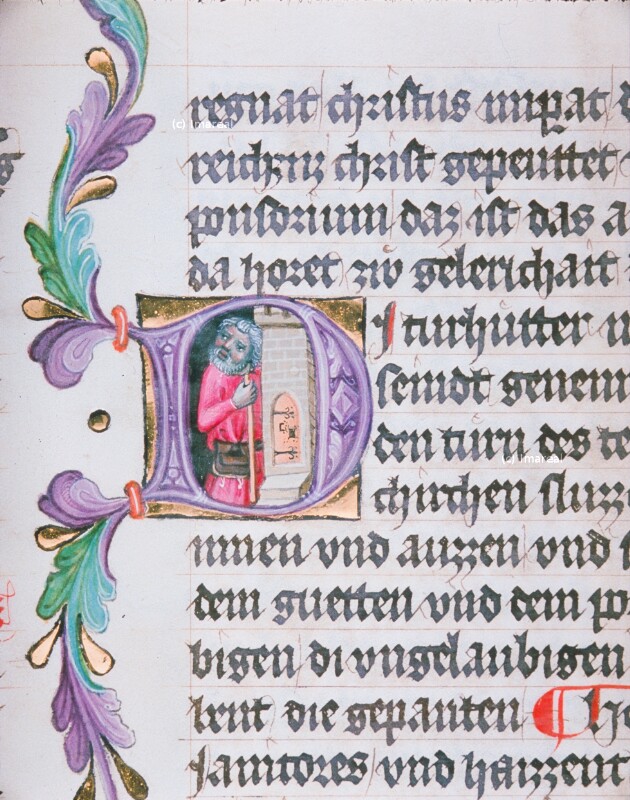 regnat christus imperat d
reich ziz christ gepeuttet
ponsorium daz ist das a
da horet zw gelerichait
D i turhutter u
seindt genenn
den turn des te
chirchen sluzze
innen vnd auzzen vnd s
dem guetten vnd dem po
bigen di vngelaubigen
lent die gepanten
Janitores vnd haizzent
(c) Imareal
(c) Imareal